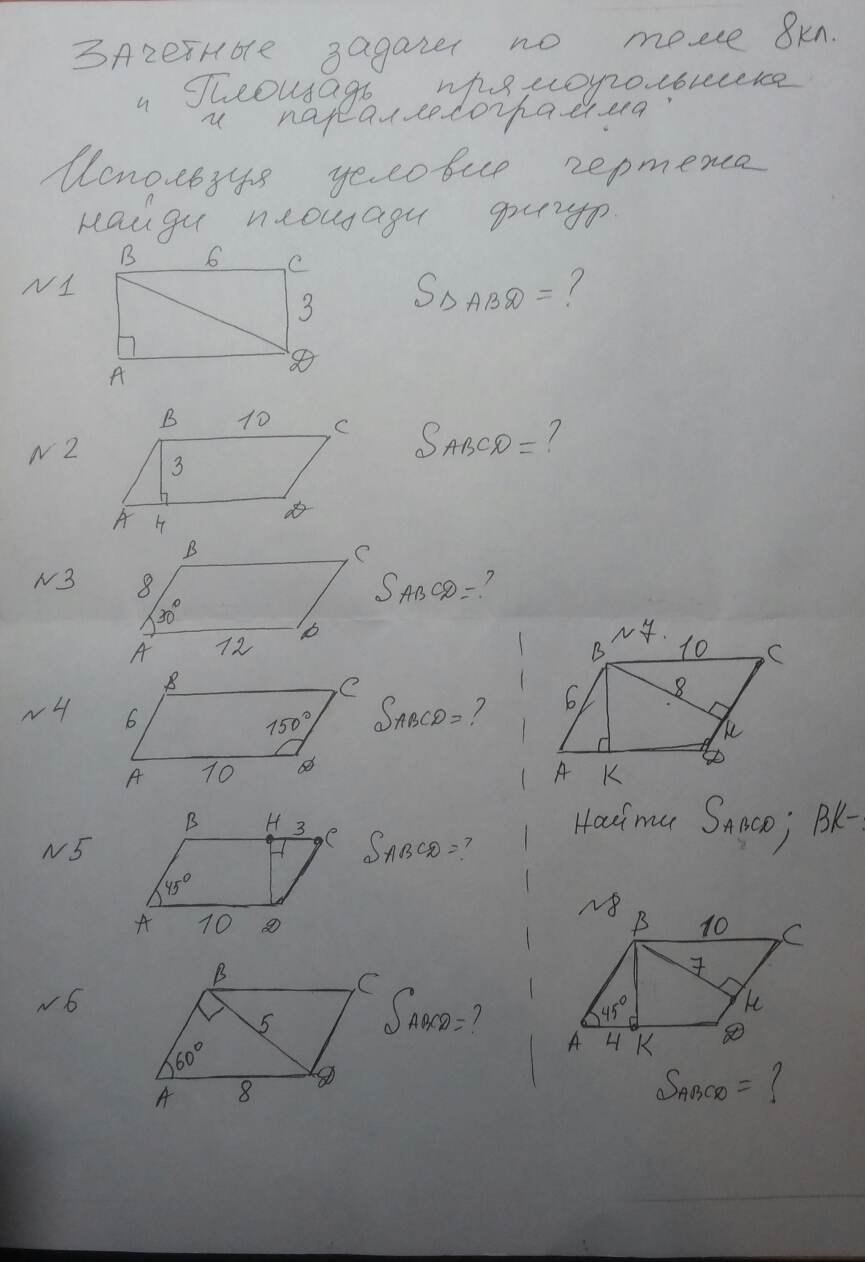 Зачетные задачи по теме 8кл.
"Площадь прямоугольника
и параллелограмма"
Используя условие чертежа
найди площади фигур.
N1
B 6 C
3
A D
S△ABD = ?
N2
B 10 C
3
A H D
SABCD = ?
N3
B C
8
30°
A 12 D
SABCD = ?
N4
B C
6
150°
A 10 D
SABCD = ?
N5
B H 3 C
45°
A 10 D
SABCD = ?
N6
B C
5
60°
A 8 D
SABCD = ?
N7.
B 10 C
6 8
H
A K D
Найти SABCD; BK-
N8
B 10 C
7
45° H
A 4 K D
SABCD = ?